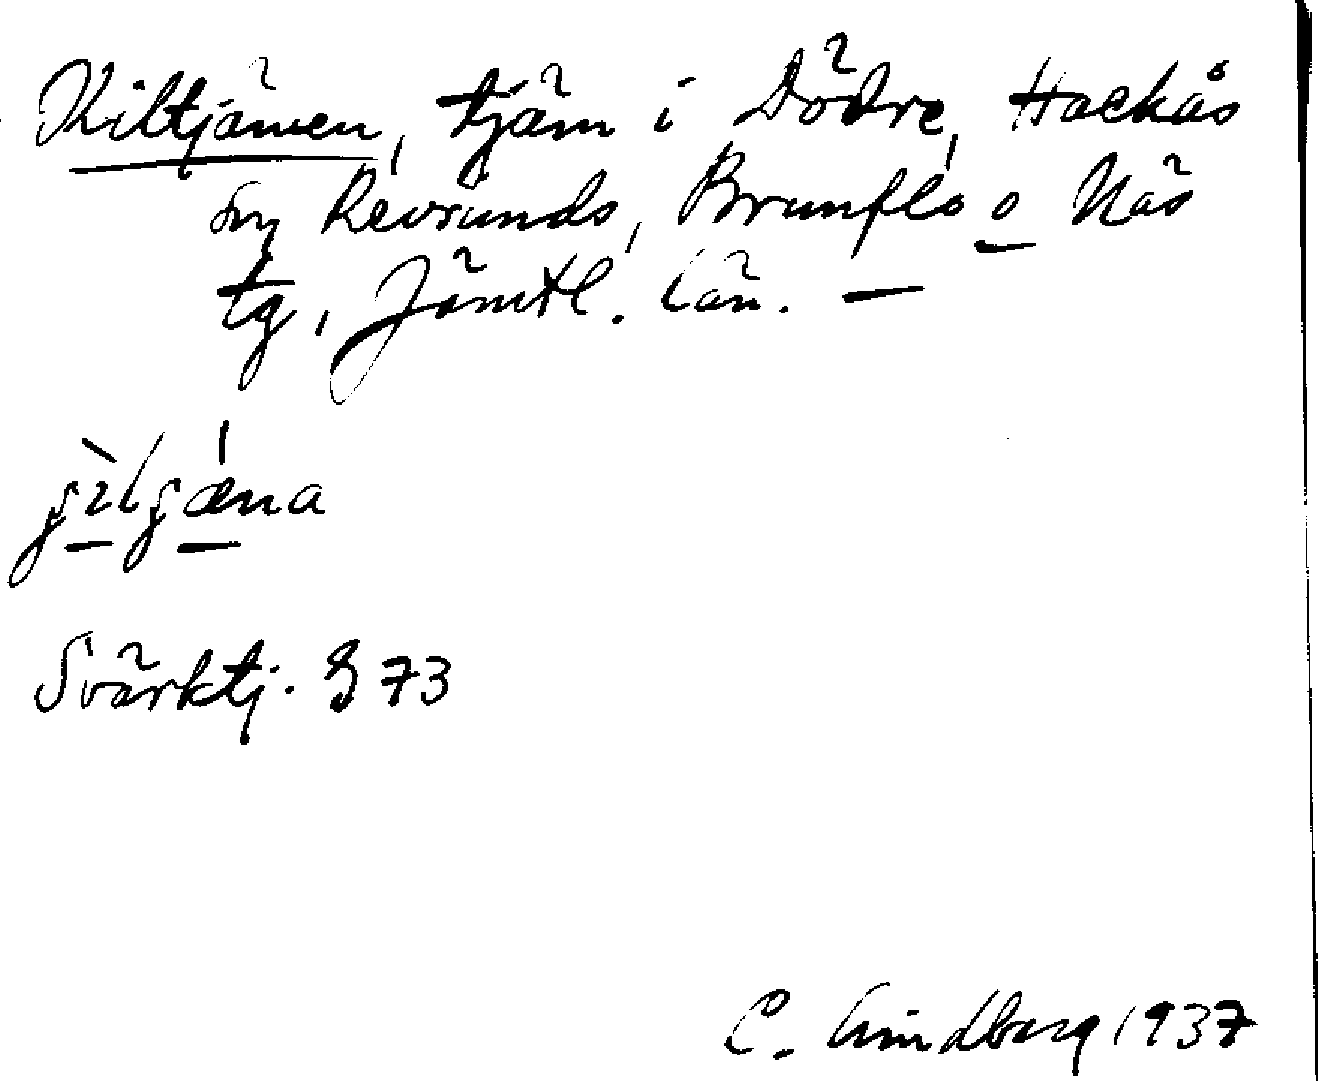 Kiltjärnen, tjärn i Dödre, Hackås
sn, Revsunds, Brunflo o Näs
tg, Jämtl. län. —
Svärktj. 73
C. Lindberg 1937